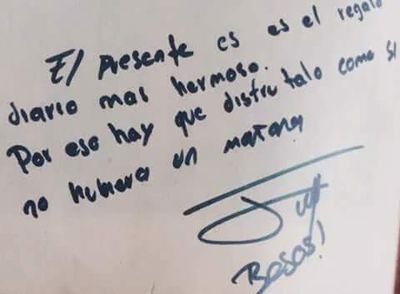 El presente es es el regalo
diario mas hermoso.
Por eso hay que disfrutalo como si
no hubiera un mañana
Besos!